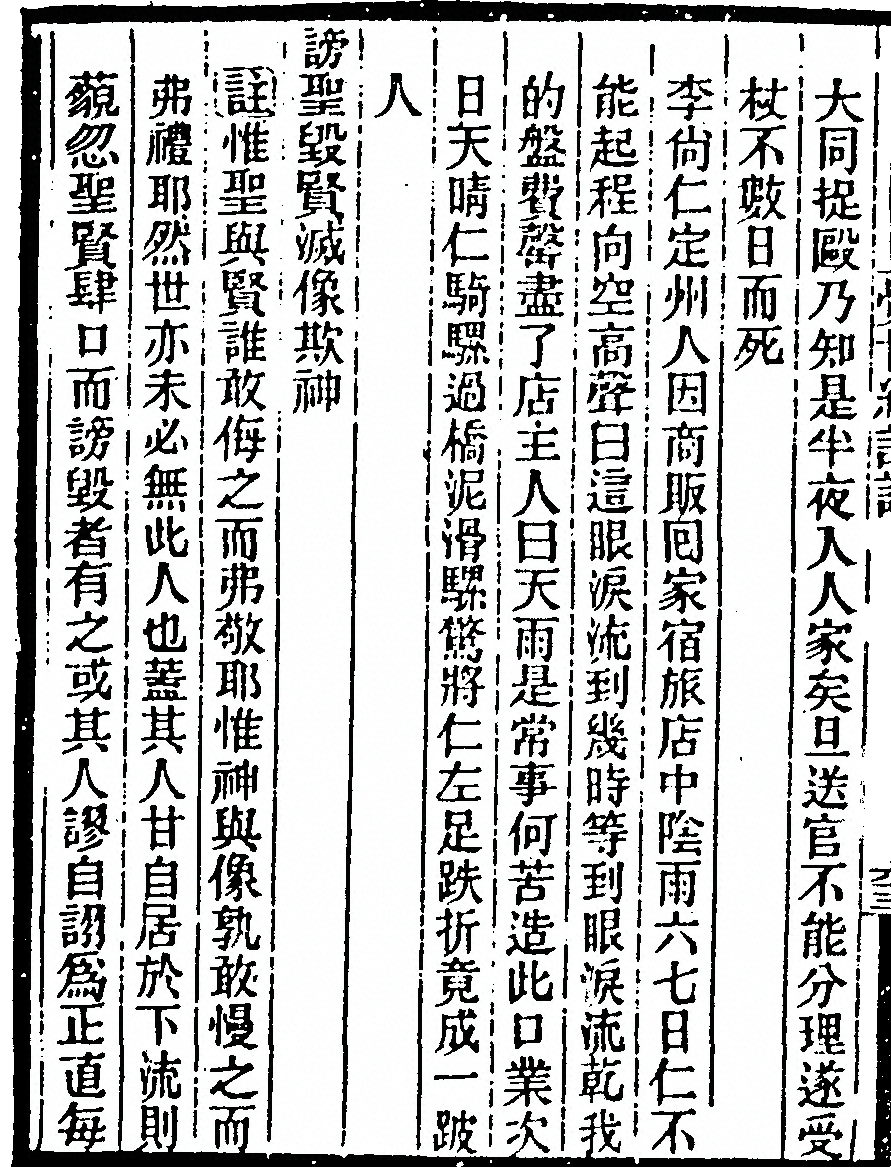 大同捉毆乃知是半夜入人家矣旦送官不能分理遂受
杖不數日而死
李尙仁定州人因商販回家宿旅店中陰雨六七日仁不
能起程向空高聲曰這眼淚流到幾時等到眼淚流乾我
的盤費罄盡了店主人曰天雨是常事何苦造此口業次
日天晴仁騎騾過橋泥滑騾驚將仁左足跌折竟成一跛
人
謗聖毀賢滅像欺神
註惟聖與賢誰敢侮之而弗敬耶惟神與像孰敢慢之而
弗禮耶然世亦未必無此人也蓋其人甘自居於下流則
藐忽聖賢肆口而謗毀者有之或其人謬自詡爲正直每